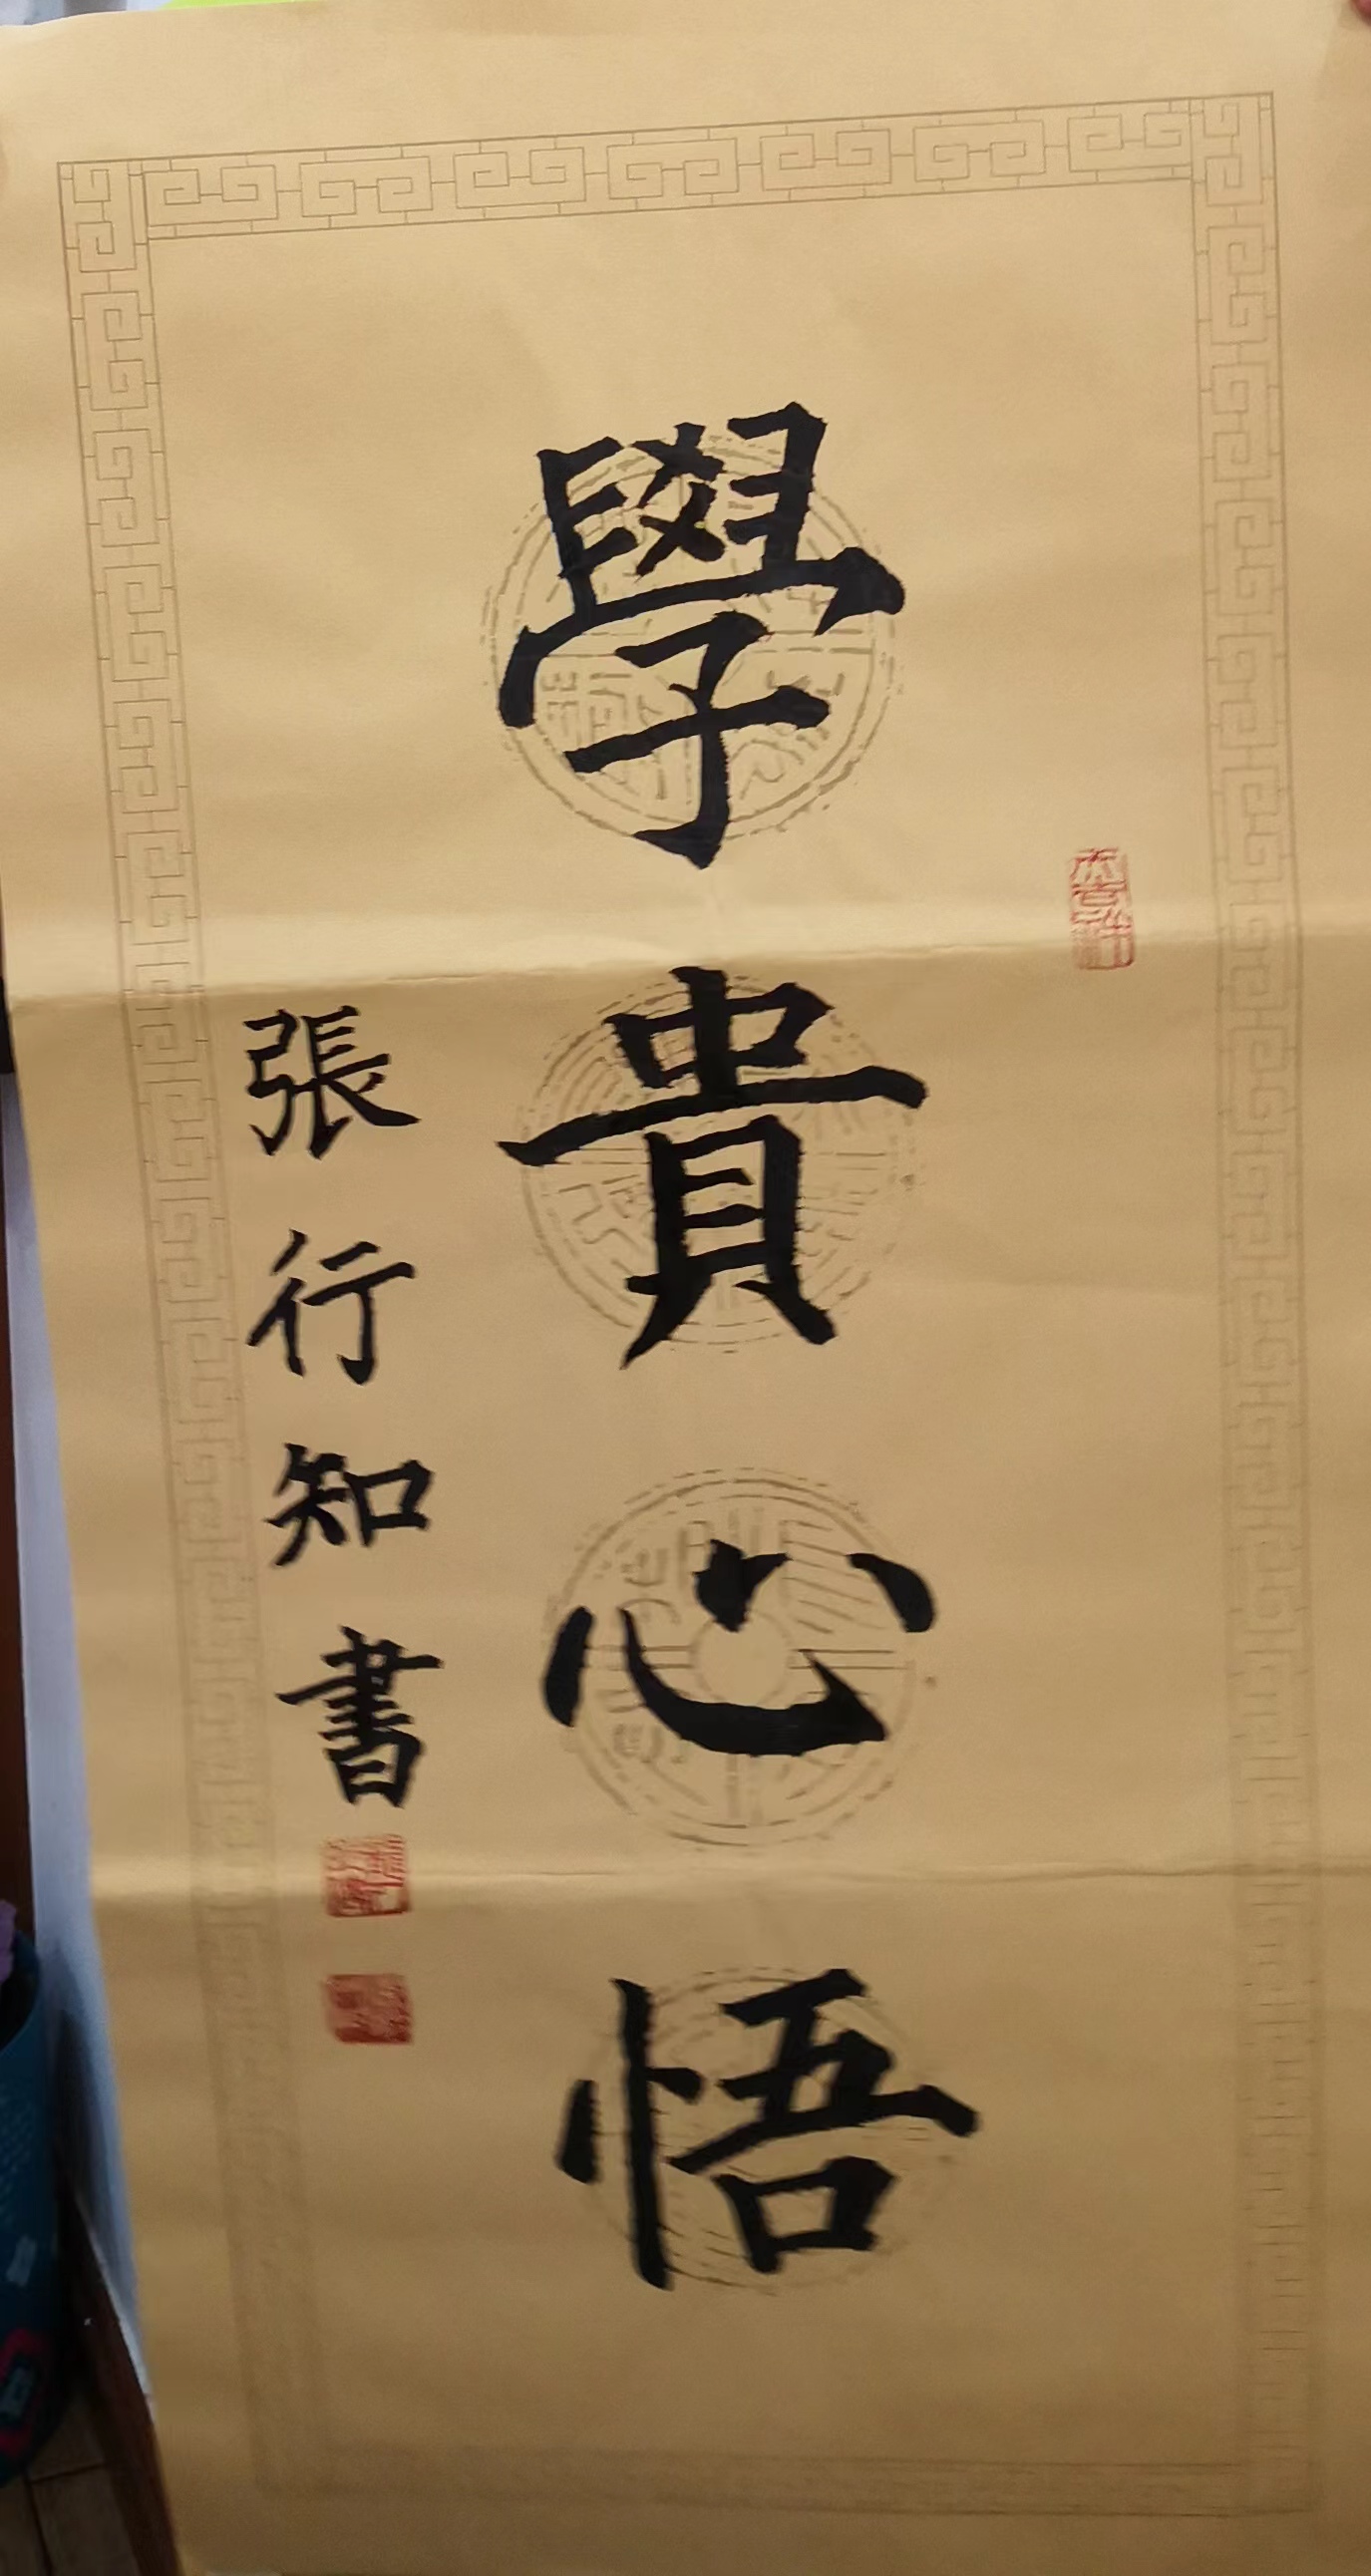 學貴心悟
張行知書